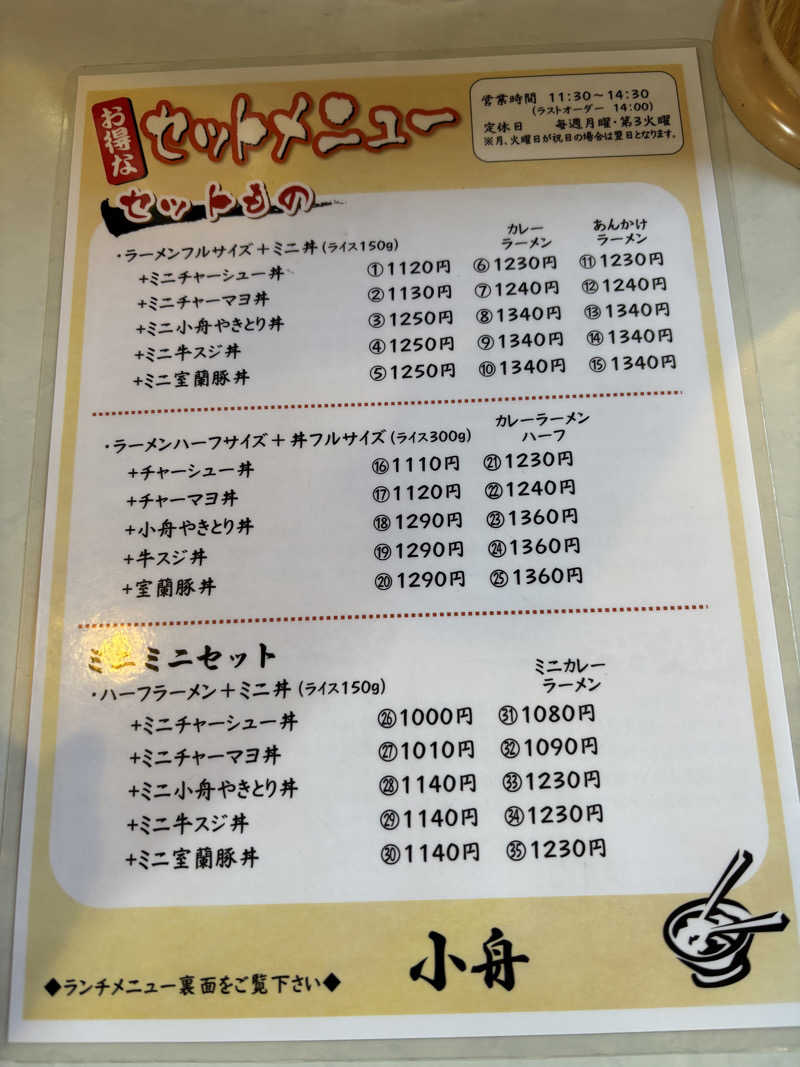 お得な セットメニュー
営業時間 11:30～14:30
(ラストオーダー 14:00)
定休日 毎週月曜・第3火曜
※月、火曜日が祝日の場合は翌日となります。
セットもの
カレー ラーメン
あんかけ ラーメン
・ラーメンフルサイズ＋ミニ丼(ライス150g)
+ミニチャーシュー丼 ①1120円 ⑥1230円 ⑪1230円
+ミニチャーマヨ丼 ②1130円 ⑦1240円 ⑫1240円
+ミニ小舟やきとり丼 ③1250円 ⑧1340円 ⑬1340円
+ミニ牛スジ丼 ④1250円 ⑨1340円 ⑭1340円
+ミニ室蘭豚丼 ⑤1250円 ⑩1340円 ⑮1340円
カレーラーメン
ハーフ
・ラーメンハーフサイズ＋丼フルサイズ(ライス300g)
+チャーシュー丼 ⑯1110円 ㉑1230円
+チャーマヨ丼 ⑰1120円 ㉒1240円
+小舟やきとり丼 ⑱1290円 ㉓1360円
+牛スジ丼 ⑲1290円 ㉔1360円
+室蘭豚丼 ⑳1290円 ㉕1360円
ミニミニセット
ミニカレー
ラーメン
・ハーフラーメン＋ミニ丼(ライス150g)
+ミニチャーシュー丼 ㉖1000円 ㉛1080円
+ミニチャーマヨ丼 ㉗1010円 ㉜1090円
+ミニ小舟やきとり丼 ㉘1140円 ㉝1230円
+ミニ牛スジ丼 ㉙1140円 ㉞1230円
+ミニ室蘭豚丼 ㉚1140円 ㉟1230円
小舟
◆ランチメニュー裏面をご覧下さい◆